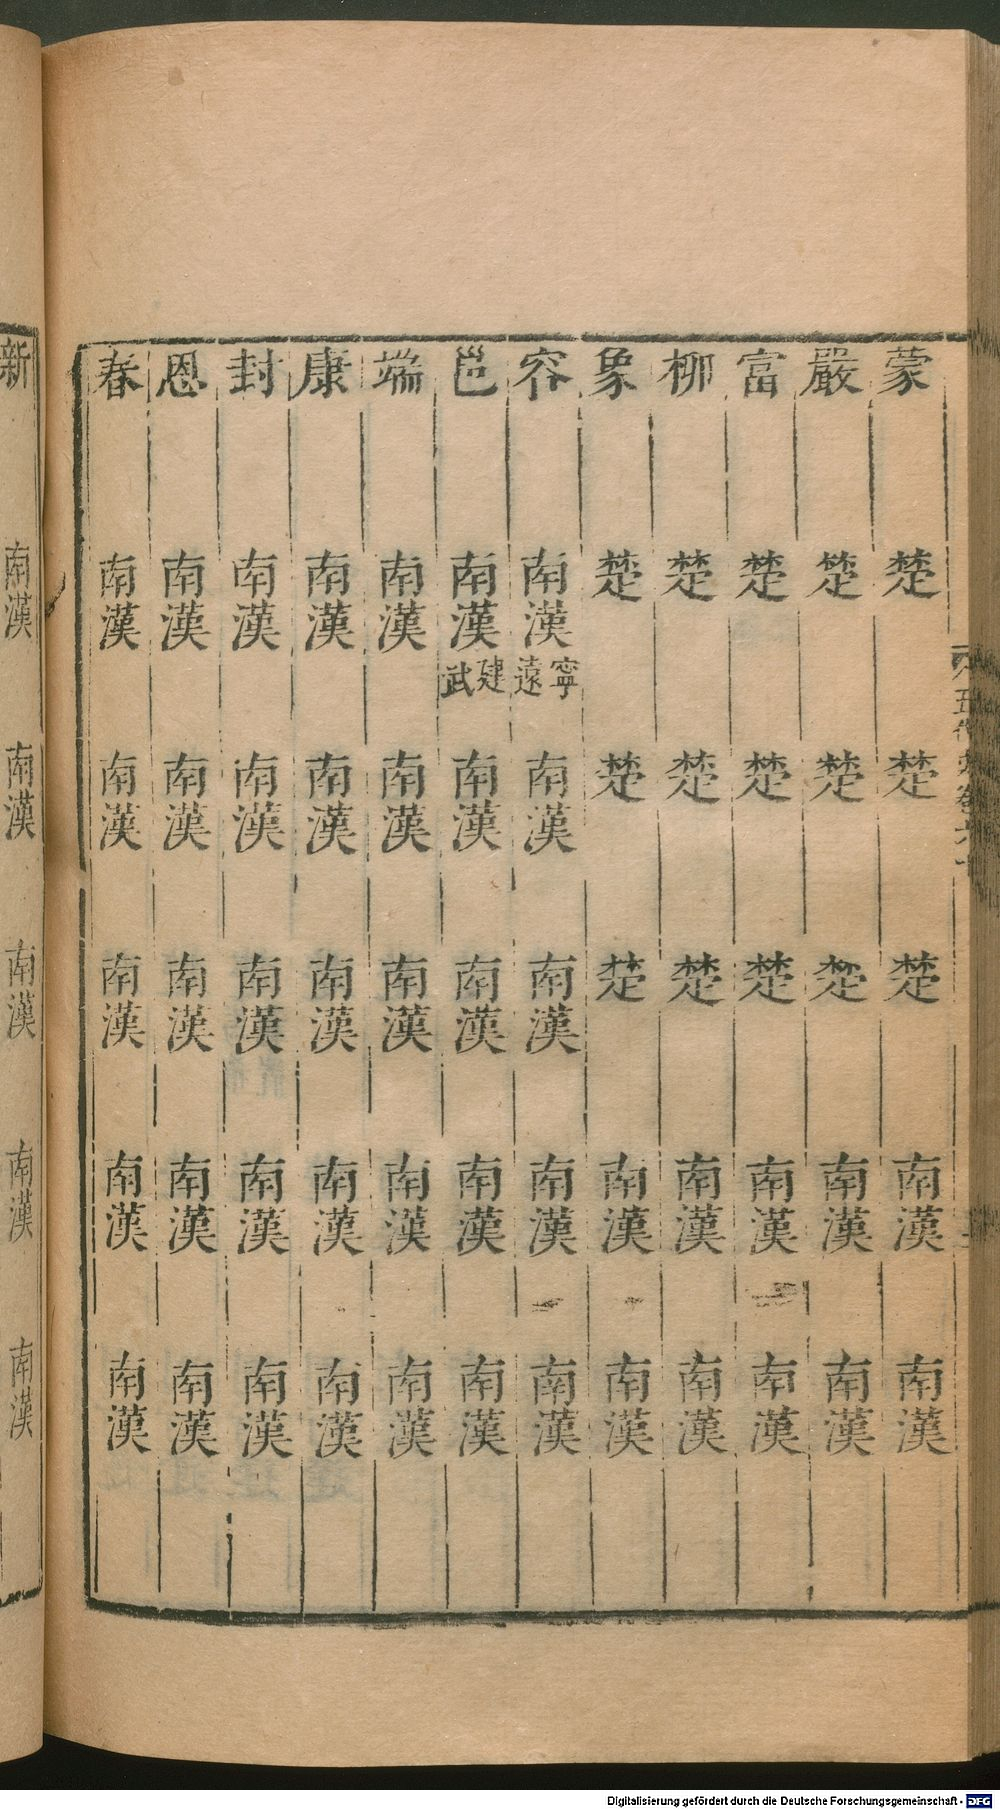 蒙 楚 楚 楚 南漢 南漢
嚴 楚 楚 楚 南漢 南漢
富 楚 楚 楚 南漢 南漢
柳 楚 楚 楚 南漢 南漢
象 楚 楚 楚 南漢 南漢
容 南漢寧遠 南漢 南漢 南漢 南漢
邕 南漢建武 南漢 南漢 南漢 南漢
端 南漢 南漢 南漢 南漢 南漢
康 南漢 南漢 南漢 南漢 南漢
封 南漢 南漢 南漢 南漢 南漢
恩 南漢 南漢 南漢 南漢 南漢
春 南漢 南漢 南漢 南漢 南漢
新 南漢 南漢 南漢 南漢 南漢
Digitalisierung gefördert durch die Deutsche Forschungsgemeinschaft - DFG